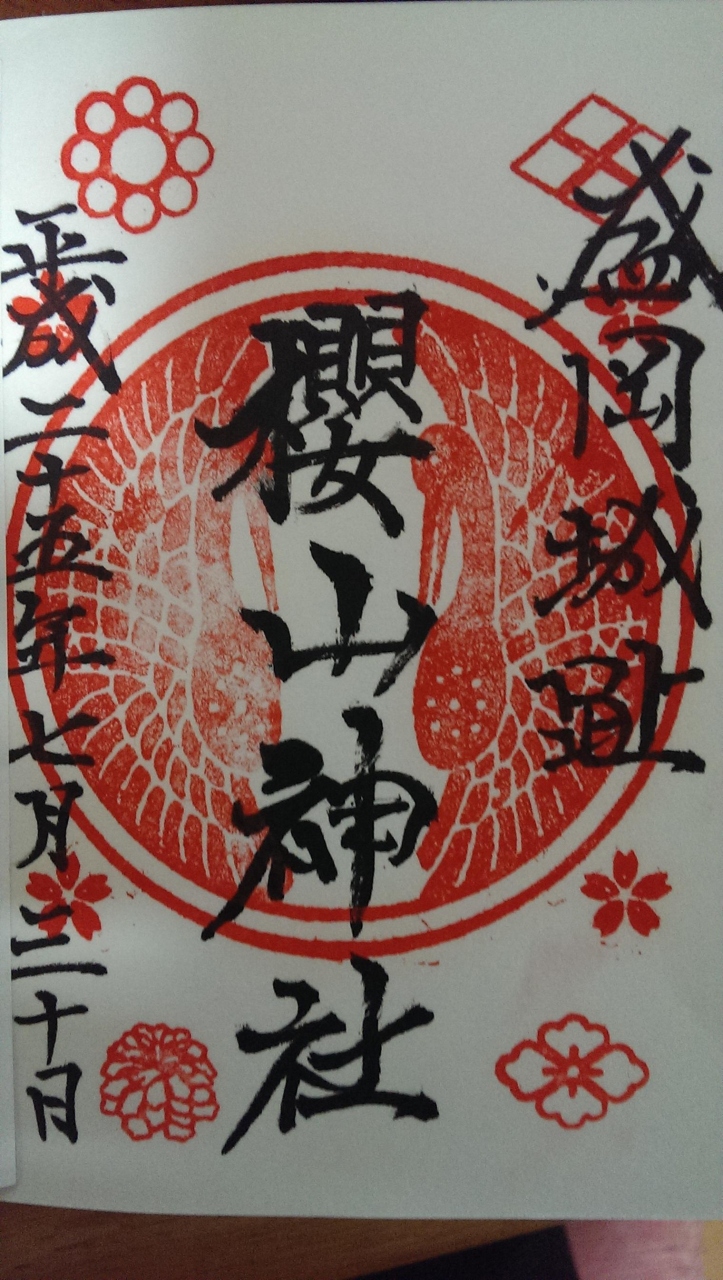 盛岡城趾
櫻山神社
平成二十五年七月三十日